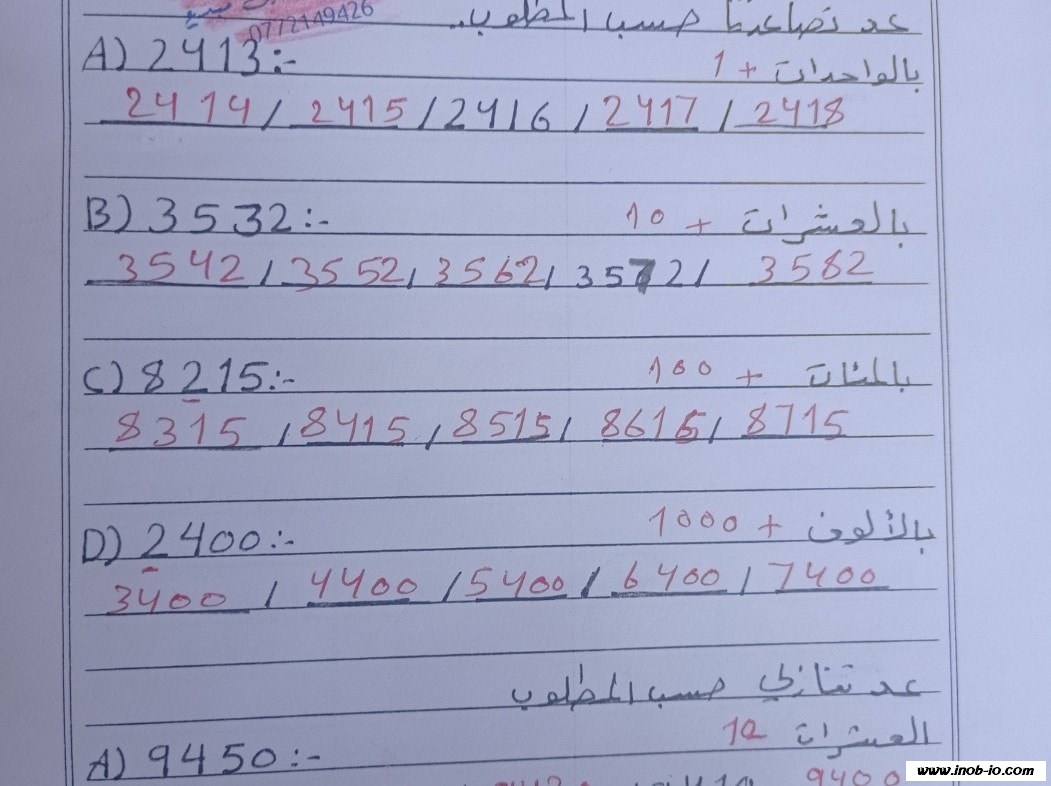 0772149426
عد تصاعديا حسب المطلوب..
A) 2413:- بالواحدات + 1
2414 / 2415 / 2416 / 2417 / 2418
B) 3532:- بالعشرات + 10
3542 / 3552 / 3562 / 3572 / 3582
C) 8215:- بالمئات + 100
8315 / 8415 / 8515 / 8615 / 8715
D) 2400:- بالألوف + 1000
3400 / 4400 / 5400 / 6400 / 7400
عد تنازلي حسب المطلوب
A) 9450:- العشرات 10
9400
www.inob-io.com